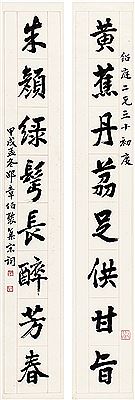 紹庭二兄三十初度
黃蕉丹荔足供甘旨
朱顏綠鬢長醉芳春
甲戌孟冬邓章伯褧集宋詞